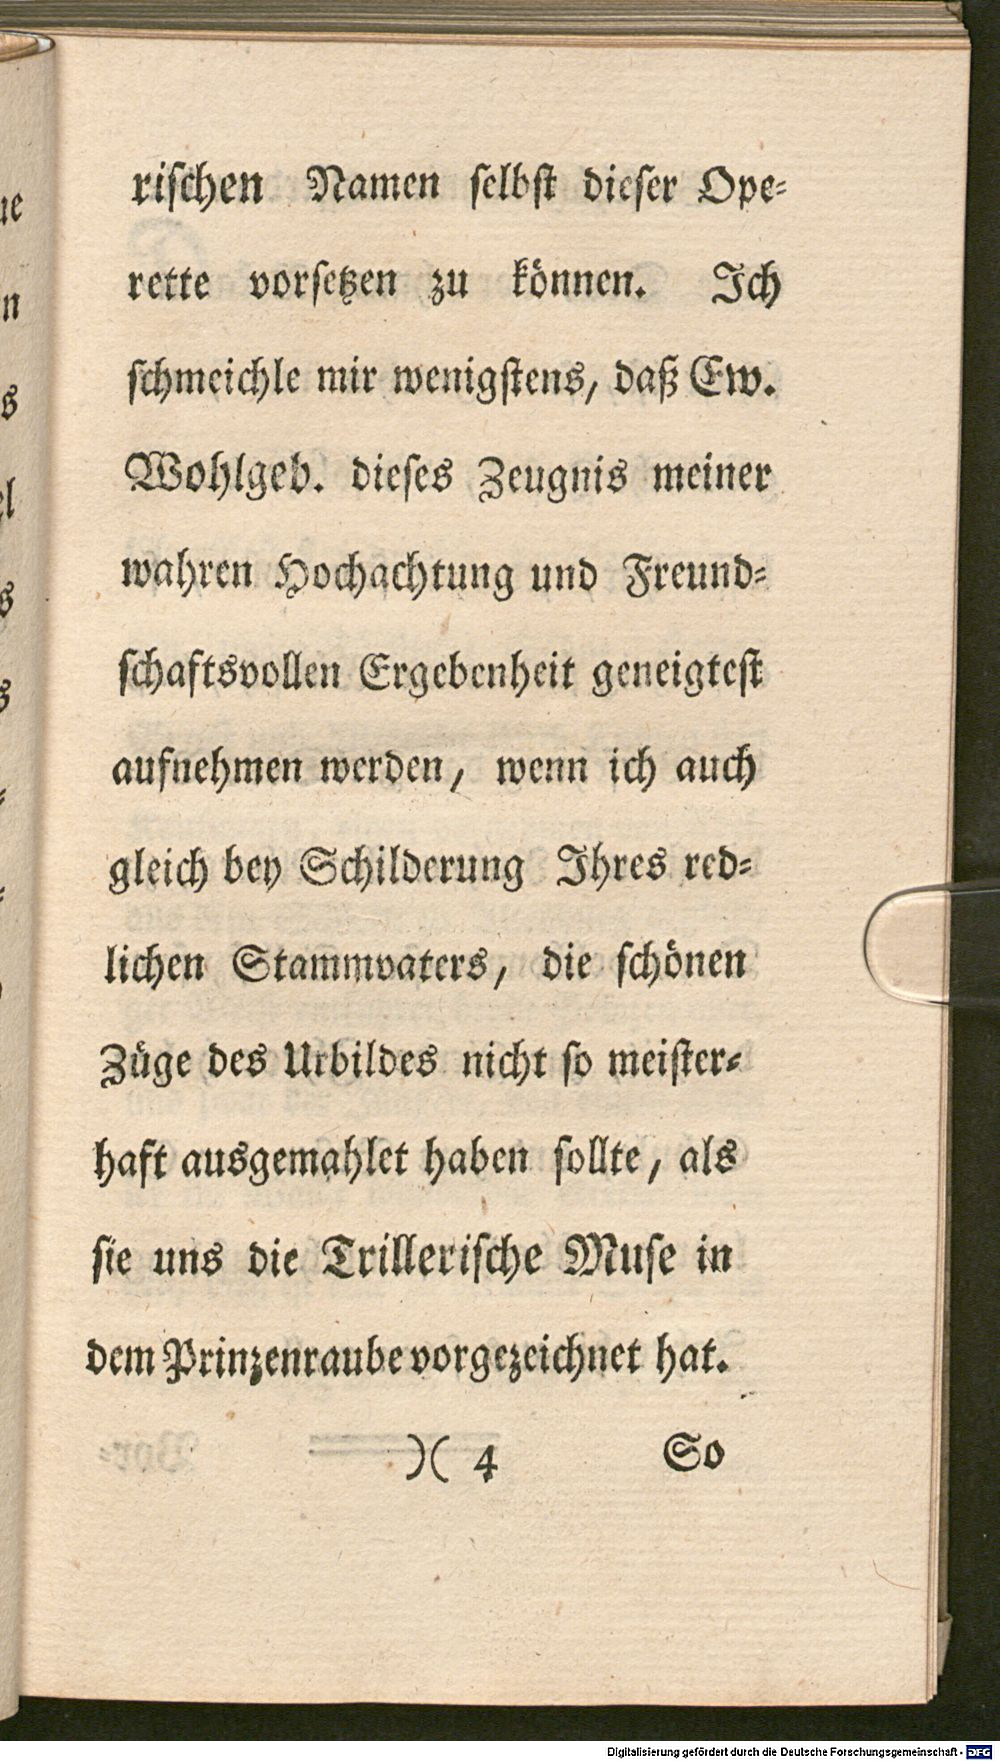 rischen Namen selbst dieser Ope-
rette vorsetzen zu können. Ich
schmeichle mir wenigstens, daß Ew.
Wohlgeb. dieses Zeugnis meiner
wahren Hochachtung und Freund-
schaftsvollen Ergebenheit geneigtest
aufnehmen werden, wenn ich auch
gleich bey Schilderung Ihres red-
lichen Stammvaters, die schönen
Züge des Urbildes nicht so meister-
haft ausgemahlet haben sollte, als
sie uns die Trillerische Muse in
dem Prinzenraube vorgezeichnet hat.
)( 4 So
Digitalisierung gefördert durch die Deutsche Forschungsgemeinschaft - DFG